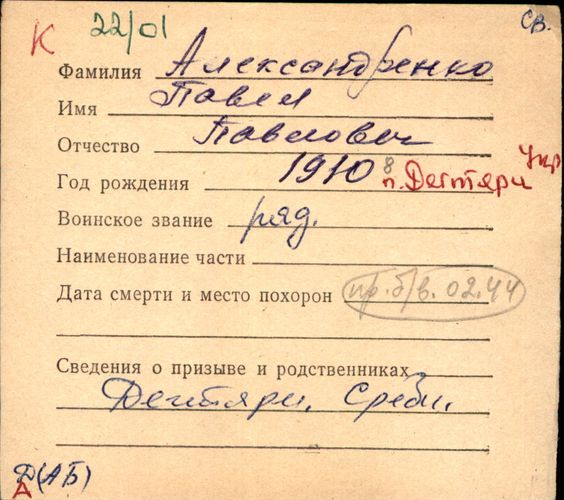 св.
К 22/01
Фамилия Александренко
Имя Павел
Отчество Павлович
Год рождения 1910 8 п. Дегтяри Укр
Воинское звание ряд.
Наименование части
Дата смерти и место похорон пр. б/в. 02.44
Сведения о призыве и родственниках
Дегтяри, Среби.
Д(АБ)
А